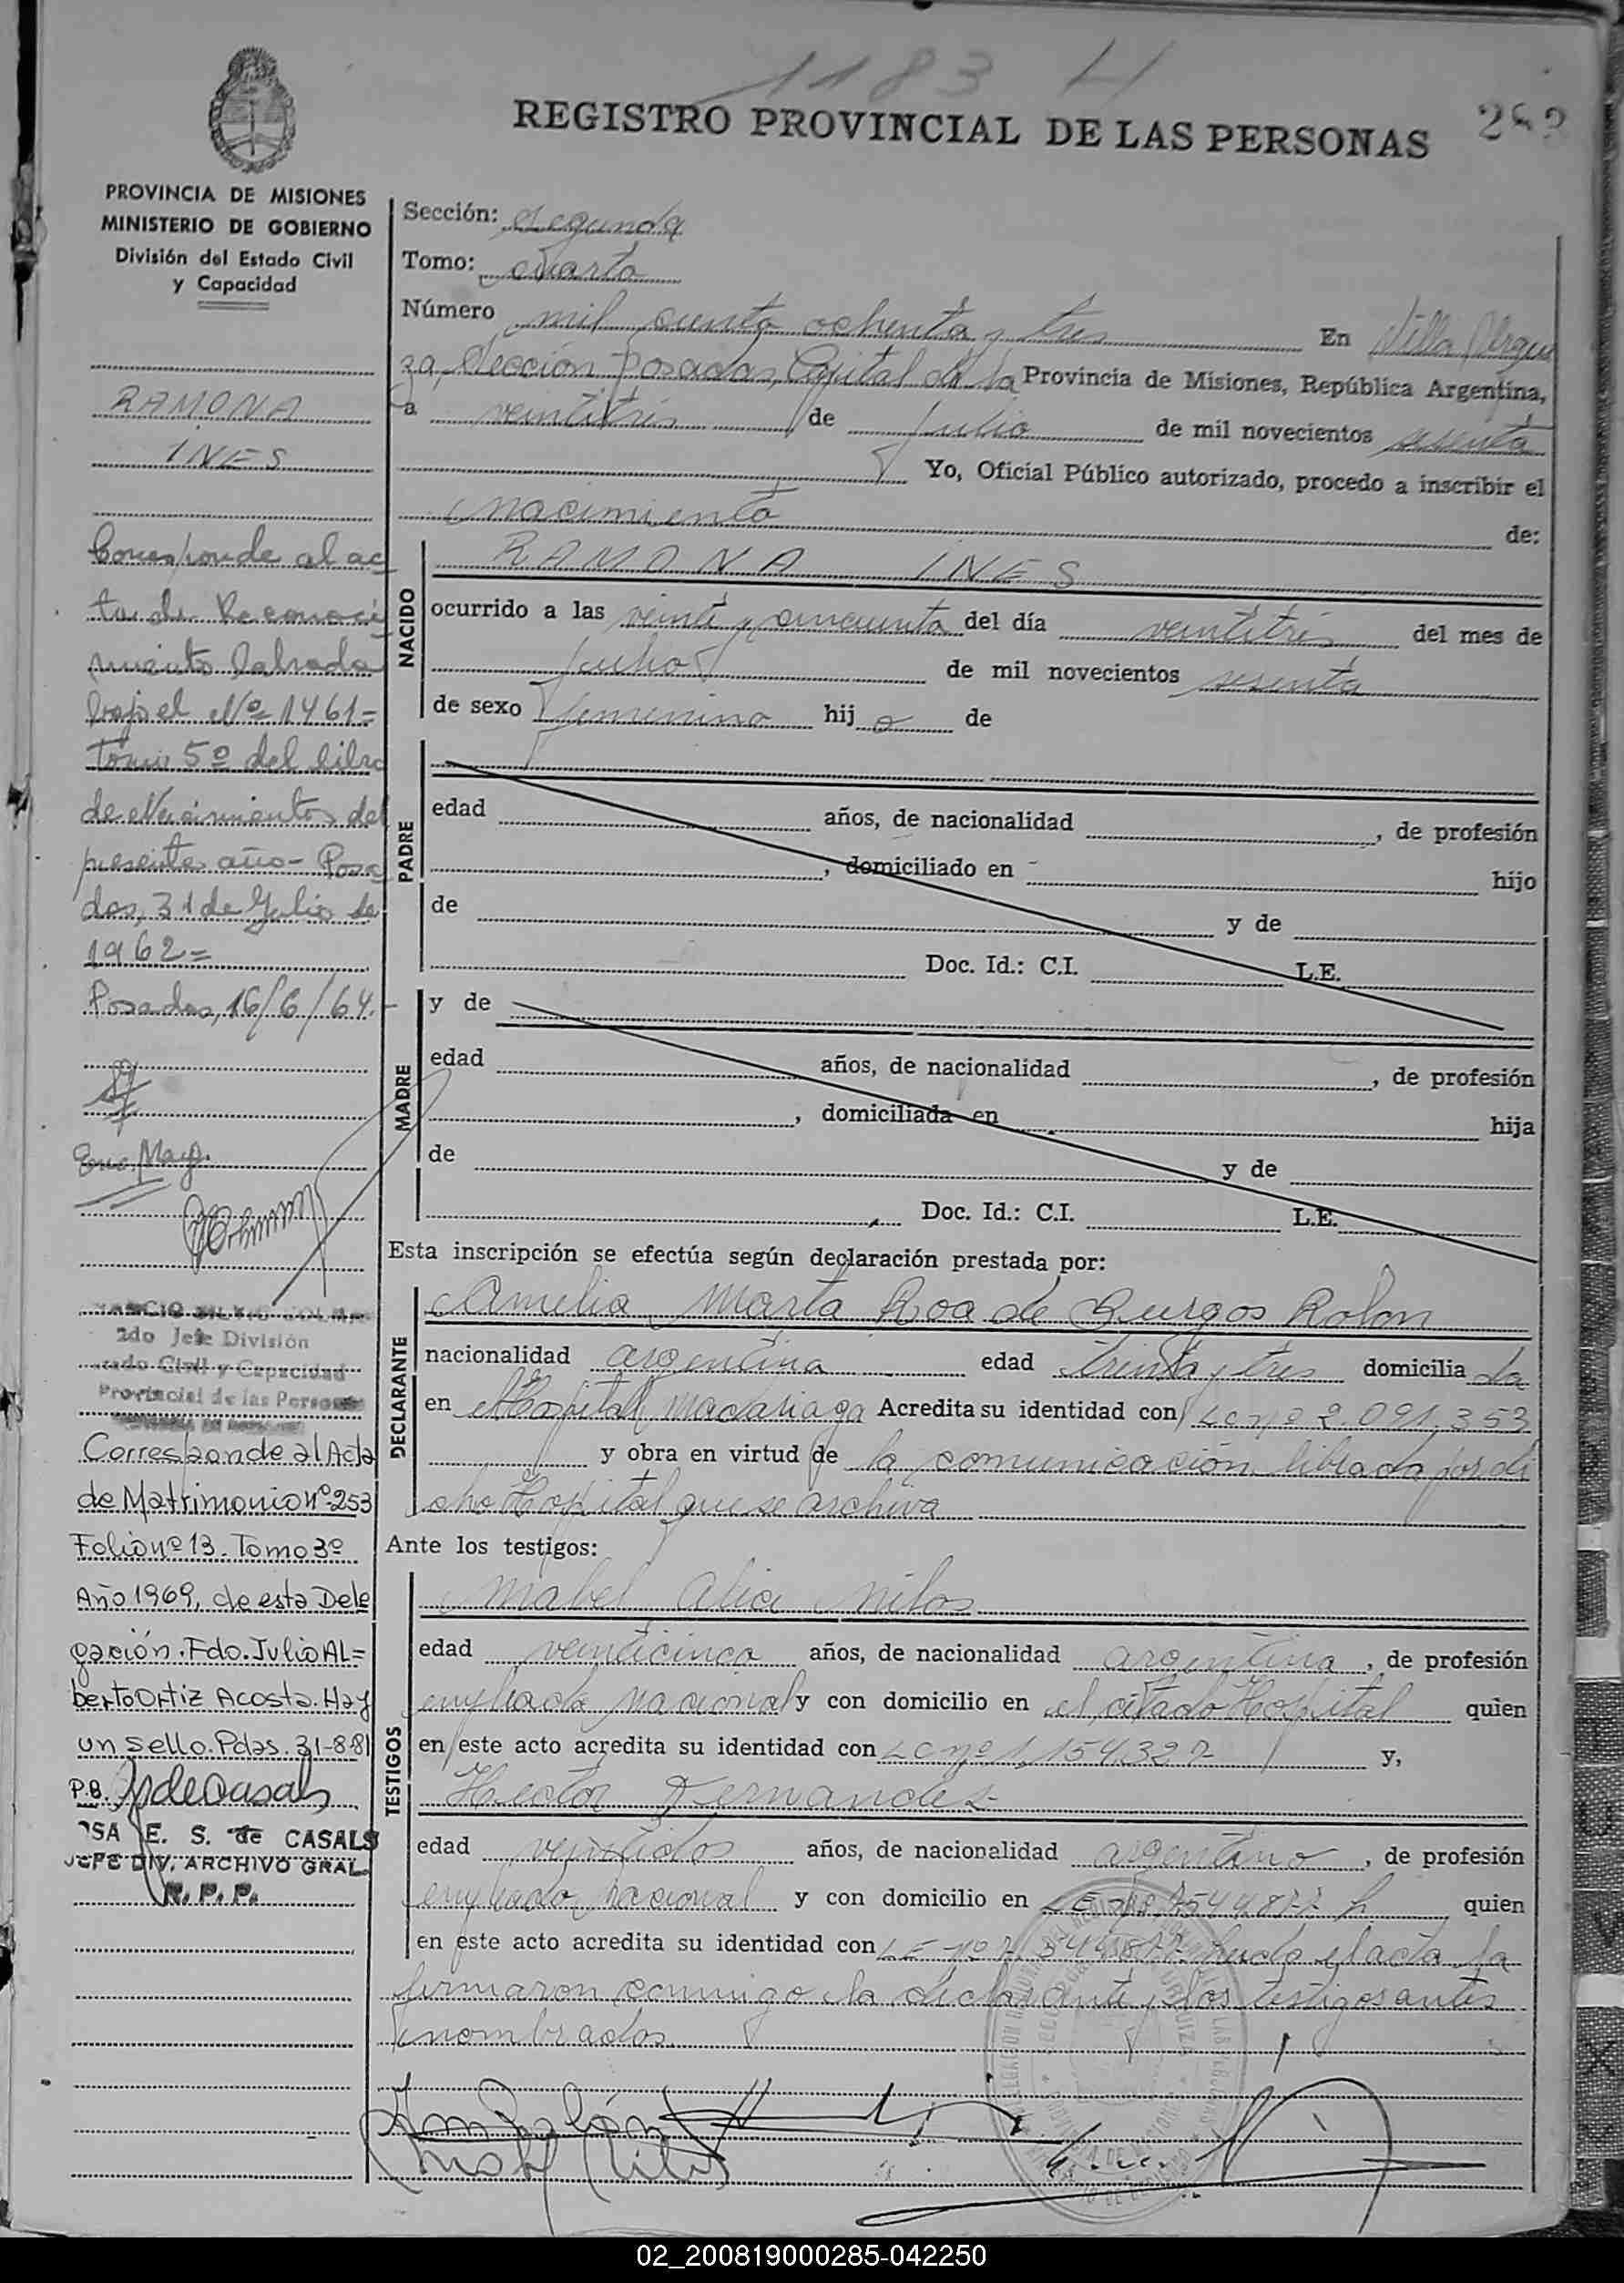 1183 H
REGISTRO PROVINCIAL DE LAS PERSONAS
PROVINCIA DE MISIONES
MINISTERIO DE GOBIERNO
División del Estado Civil
y Capacidad
RAMONA
INES
Corresponde al ac
ta de Reconoci
miento labrada
bajo el Nº 1461=
Tomo 5º del libro
de Nacimientos del
presente año - Posa
das, 31 de Julio de
1962=
Posadas, 16/6/64.-
Enc. May.
2do Jefe División
Estado Civil y Capacidad
Provincial de las Personas
Corresponde al Acta
de Matrimonio nº 253
Folio nº 13. Tomo 3º
Año 1969, de esta Dele
gación. Fdo. Julio AL=
berto Ortiz Acosta. Hay
un sello. Pdas. 31-8-81
P.B.
E. S. de CASALS
JEFE DIV. ARCHIVO GRAL.
R. P. P.
Sección: segunda
Tomo: cuarto
Número mil ciento ochenta y tres En Villa Urqui
za, Sección Posadas, Capital de la Provincia de Misiones, República Argentina,
a veintitrés de julio de mil novecientos sesenta
Yo, Oficial Público autorizado, procedo a inscribir el
nacimiento de:
NACIDO
RAMONA INES
ocurrido a las veinte y cincuenta del día veintitrés del mes de
julio de mil novecientos sesenta
de sexo femenino hij a de
PADRE
edad años, de nacionalidad , de profesión
, domiciliado en hijo
de y de
Doc. Id.: C.I. L.E.
MADRE
y de
edad años, de nacionalidad , de profesión
, domiciliada en hija
de y de
Doc. Id.: C.I. L.E.
Esta inscripción se efectúa según declaración prestada por:
DECLARANTE
Amelia Marta Roa de Burgos Rolon
nacionalidad argentina edad treinta y tres domicilia da
en Hospital Madariaga Acredita su identidad con Lc nº 2.091.353
y obra en virtud de la comunicación librada por di
cho Hospital que se archiva
Ante los testigos:
TESTIGOS
Mabel Alice Milos
edad veinticinco años, de nacionalidad argentina , de profesión
empleada nacional y con domicilio en el citado Hospital quien
en este acto acredita su identidad con LC nº 1.154.327 y,
Hector Fernandez
edad veintidos años, de nacionalidad argentino , de profesión
empleado nacional y con domicilio en quien
en este acto acredita su identidad con LE nº el acta la
firmaron conmigo la declarante y los testigos antes
nombrados.
02_200819000285-042250